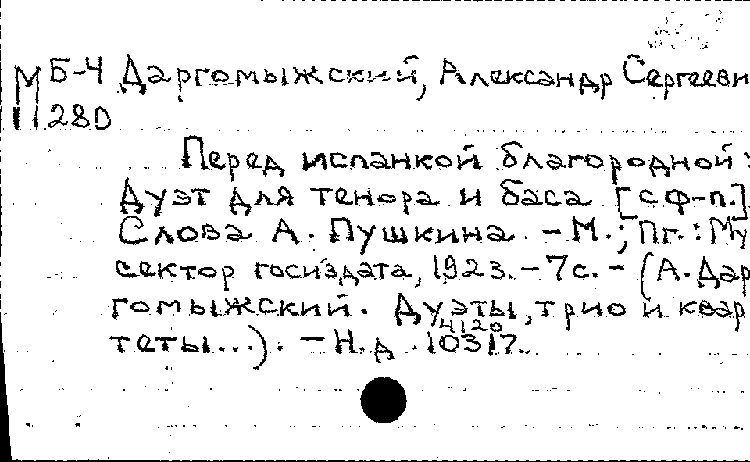 М Б-4 Даргомыжский, Александр Сергееви
280
Перед испанкой благородной:
Дуэт для тенора и баса [с ф-п.]
Слова А. Пушкина. - М.; Пг.: Му
сектор госиздата, 1923. - 7с. - (А. Дар
гомыжский. Дуэты, трио и квар
4120
теты...). - Н.д. 10317.